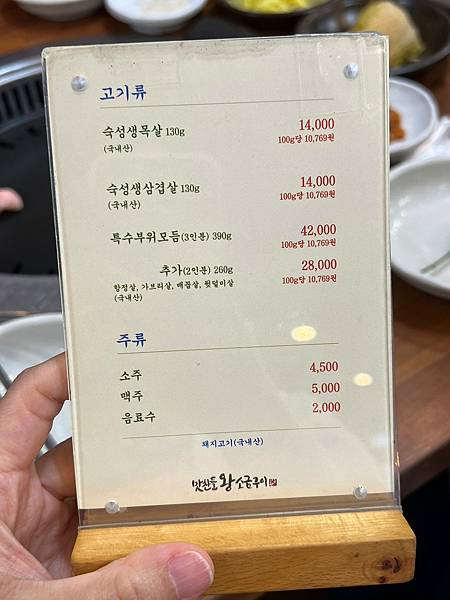 고기류
숙성생목살 130g 14,000
(국내산) 100g당 10,769원
숙성생삼겹살 130g 14,000
(국내산) 100g당 10,769원
특수부위모듬(3인분) 390g 42,000
100g당 10,769원
추가(2인분) 260g 28,000
항정살, 가브리살, 배꼽살, 뒷덜미살 100g당 10,769원
(국내산)
주류
소주 4,500
맥주 5,000
음료수 2,000
돼지고기(국내산)
맛찬들 왕소금구이